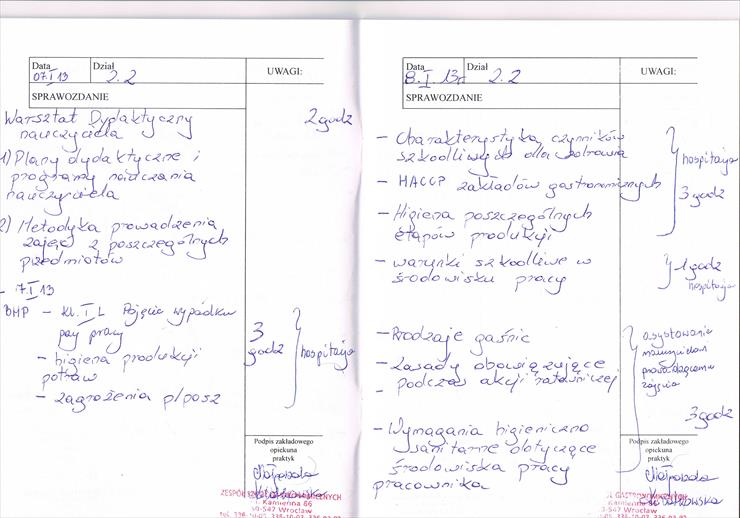 Data
07.I 13
Dział
2.2
UWAGI:
SPRAWOZDANIE
Warsztat Dydaktyczny
nauczyciela
2 godz
1) Plany dydaktyczne i
programy nauczania
nauczyciela
2) Metodyka prowadzenia
zajęć z poszczególnych
przedmiotów
- 7.I 13
BHP - kl. I L Pojęcie wypadku
pracy
- higiena produkcji
potraw
- zagrożenia p/poż
3
godz
hospitacja
Podpis zakładowego
opiekuna
praktyk
Małgorzata
ZESPÓŁ
Kamienna 86
50-547 Wrocław
Data
8.I.13r
Dział
2.2
UWAGI:
SPRAWOZDANIE
- Charakterystyka czynników
szkodliwych dla zdrowia
- HACCP zakładów gastronomicznych
- Higiena poszczególnych
etapów produkcji
hospitacja
3 godz
- warunki szkodliwe w
środowisku pracy
1 godz
hospitacja
- Rodzaje gaśnic
- Zasady obowiązujące
- podczas akcji ratowniczej
asystowanie
nauczycielowi
prowadzącemu
zajęcia
3 godz
- Wymagania higieniczno
sanitarne dotyczące
środowiska pracy
pracownika
Podpis zakładowego
opiekuna
praktyk
Małgorzata
Kamienna 86
50-547 Wrocław